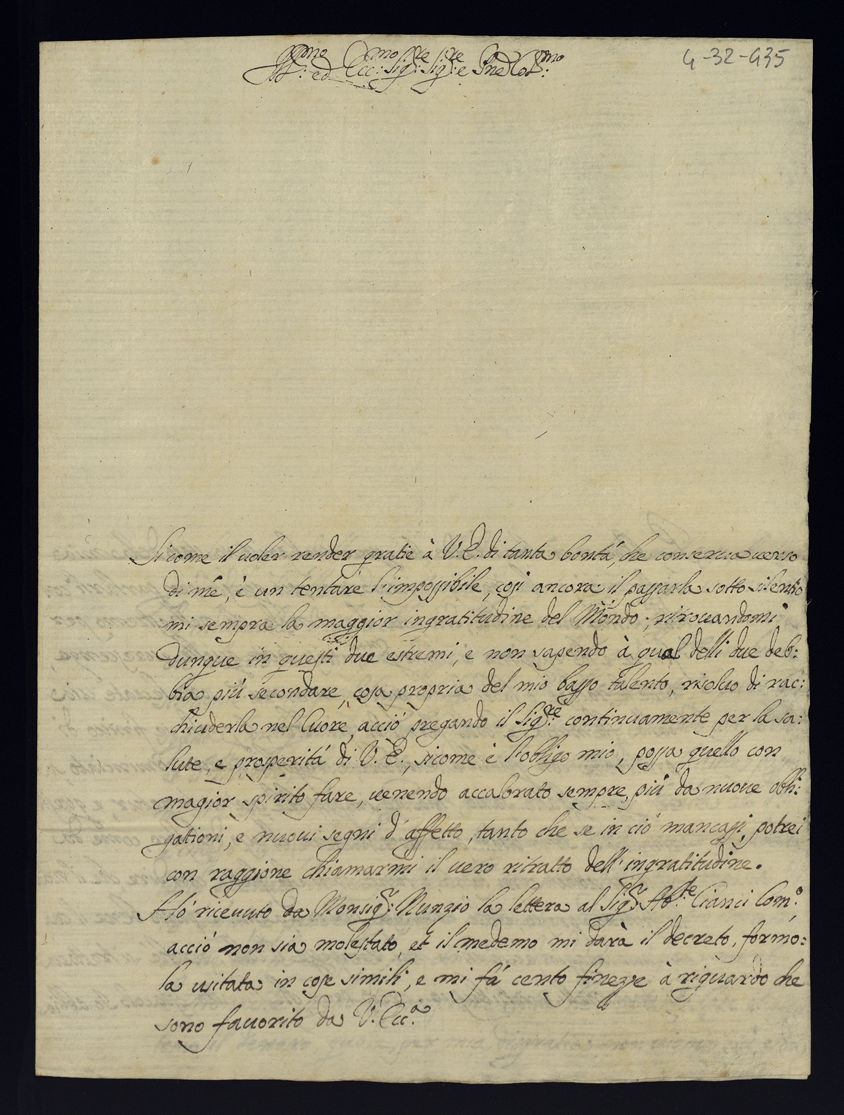 Ill:mo ed Ecc:mo Sig:re Sig:re e Pne Col:mo
4-32-435
Sicome il voler render gratie à V.E. di tanta bontá, che conserva verso
di mé, è un tentare l'impossibile, cosi ancora il passarla sotto silentio
mi sempra la maggior ingratitudine del Mondo; ritrovandomi
dunque in questi due estremi, e non sapendo à qual delli due deb:
bia piú secondare, cosa propria del mio basso talento, risolvo di rac:
chiuderla nel Cuore, acció pregando il Sig:re continuamente per la sa:
lute, e prosperitá di V.E., sicome è l'obligo mio, possa quello con
magior spirito fare, venendo accalorato sempre piú da nuove obli:
gationi, e nuovi segni d'affetto, tanto che se in ció mancassi, potrei
con raggione chiamarmi il vero ritratto dell'ingratitudine.
Hó ricevuto da Monsig:r Nunzio la lettera al Sig:r Ab:te Cianci Com:o
acció non sia molestato, et il medemo mi dará il decreto, formo:
la usitata in cose simili, e mi fá cento finezze à riguardo che
sono favorito da V. Ecc:a